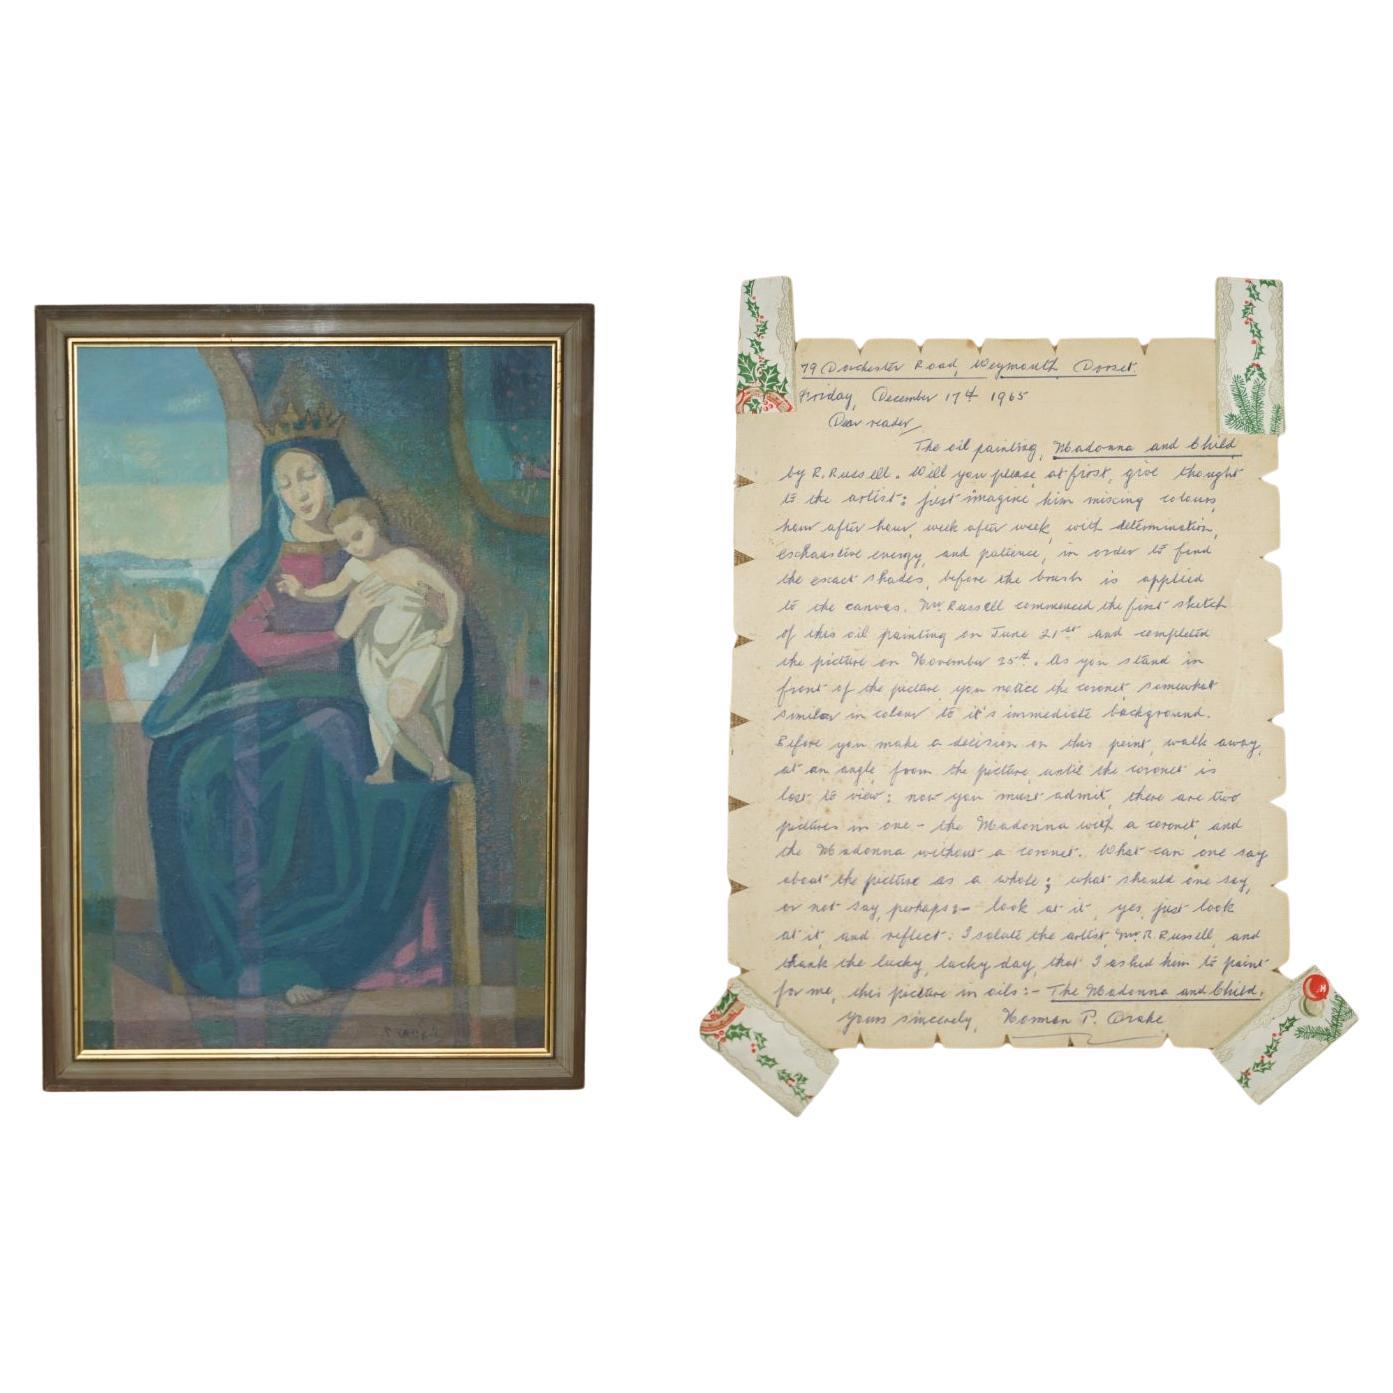 79 Dorchester Road, Weymouth, Dorset.
Friday, December 17th 1965
Dear reader,
The oil painting, Madonna and Child,
by R. Russell. Will you please, at first, give thought
to the artist: just imagine him mixing colours,
hour after hour, week after week, with determination,
exhaustive energy, and patience, in order to find
the exact shades, before the brush is applied
to the canvas. Mr. Russell commenced the first sketch
of this oil painting on June 21st and completed
the picture on November 25th. As you stand in
front of the picture, you notice the coronet, somewhat
similar in colour to it's immediate background.
Before you make a decision on this point, walk away,
at an angle, from the picture, until the coronet is
lost to view: now you must admit, there are two
pictures in one - the Madonna with a coronet, and
the Madonna without a coronet. What can one say
about the picture as a whole; what should one say,
or not say, perhaps:- look at it, yes, just look
at it, and reflect: I salute the artist Mr. R. Russell, and
thank the lucky, lucky day, that I asked him to paint
for me, this picture in oils:- The Madonna and Child.
Yours sincerely, Norman P. Drake